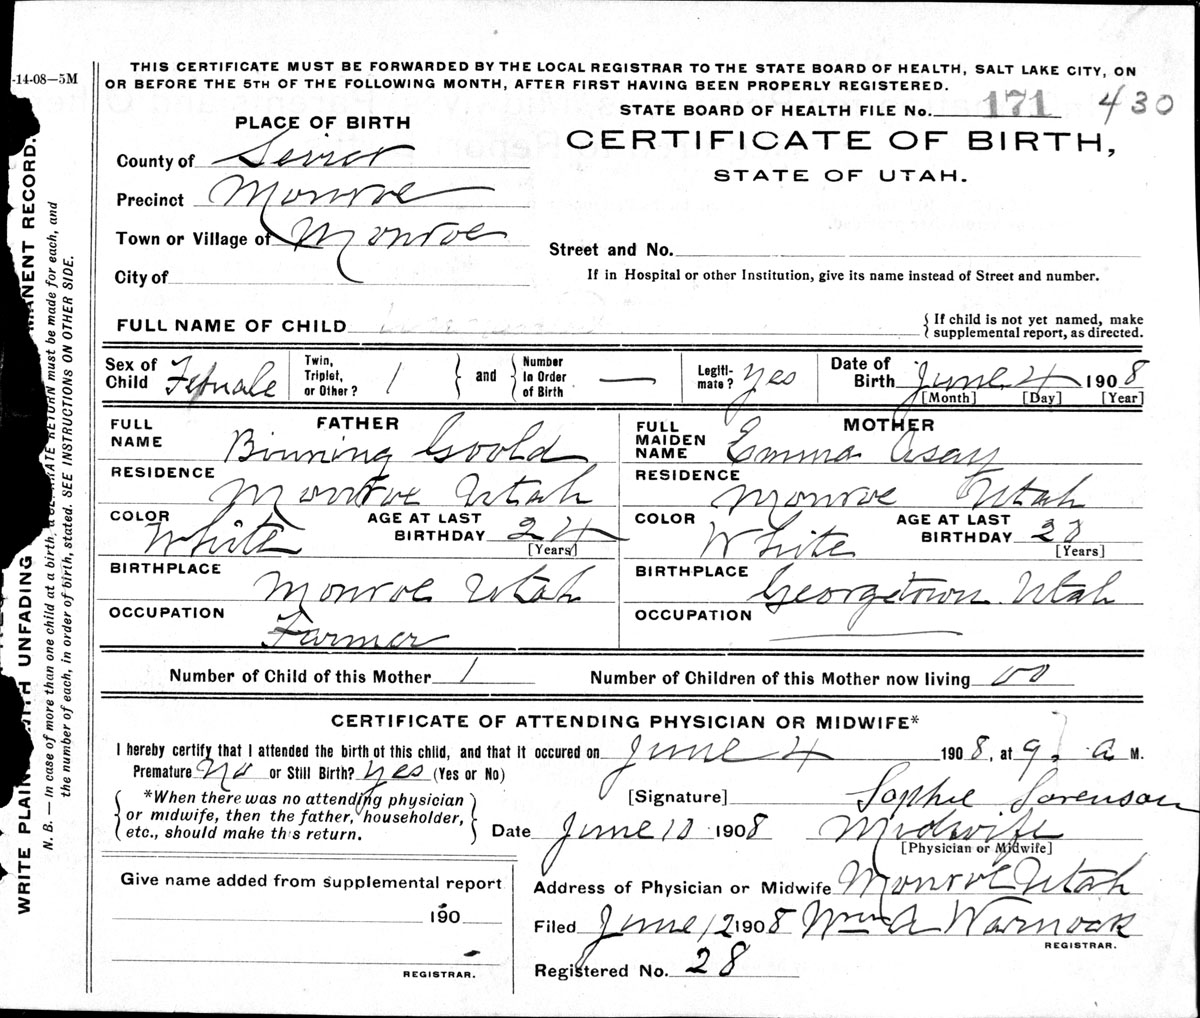 -14-08—5M
THIS CERTIFICATE MUST BE FORWARDED BY THE LOCAL REGISTRAR TO THE STATE BOARD OF HEALTH, SALT LAKE CITY, ON
OR BEFORE THE 5TH OF THE FOLLOWING MONTH, AFTER FIRST HAVING BEEN PROPERLY REGISTERED.
STATE BOARD OF HEALTH FILE No. 171 430
PLACE OF BIRTH
CERTIFICATE OF BIRTH,
STATE OF UTAH.
County of Sevier
Precinct Monroe
Town or Village of Monroe
Street and No.
City of
If in Hospital or other Institution, give its name instead of Street and number.
FULL NAME OF CHILD
{ If child is not yet named, make
{ supplemental report, as directed.
Sex of Child Female
Twin, Triplet, or Other? 1 } and { Number In Order of Birth —
Legiti-mate? Yes
Date of Birth June 4 1908
[Month] [Day] [Year]
FATHER
FULL NAME Binning Goold
RESIDENCE Monroe Utah
COLOR White AGE AT LAST BIRTHDAY 24
[Years]
BIRTHPLACE Monroe Utah
OCCUPATION Farmer
MOTHER
FULL MAIDEN NAME Emma Asay
RESIDENCE Monroe Utah
COLOR White AGE AT LAST BIRTHDAY
[Years]
BIRTHPLACE Georgetown Utah
OCCUPATION
Number of Child of this Mother 1 Number of Children of this Mother now living 00
CERTIFICATE OF ATTENDING PHYSICIAN OR MIDWIFE*
I hereby certify that I attended the birth of this child, and that it occured on June 4 1908, at 9 a M.
Premature No or Still Birth? Yes (Yes or No)
{ *When there was no attending physician
or midwife, then the father, householder,
etc., should make this return. }
[Signature] Sophie Sorenson
Date June 10 1908 Midwife
[Physician or Midwife]
Give name added from supplemental report
190
REGISTRAR.
Address of Physician or Midwife Monroe Utah
Filed June 12 1908 Wm A Warnock
REGISTRAR.
Registered No. 28
WRITE PLAIN WITH UNFADING MANENT RECORD.
N. B. — In case of more than one child at a birth, a SEPARATE RETURN must be made for each, and
the number of each, in order of birth, stated. SEE INSTRUCTIONS ON OTHER SIDE.